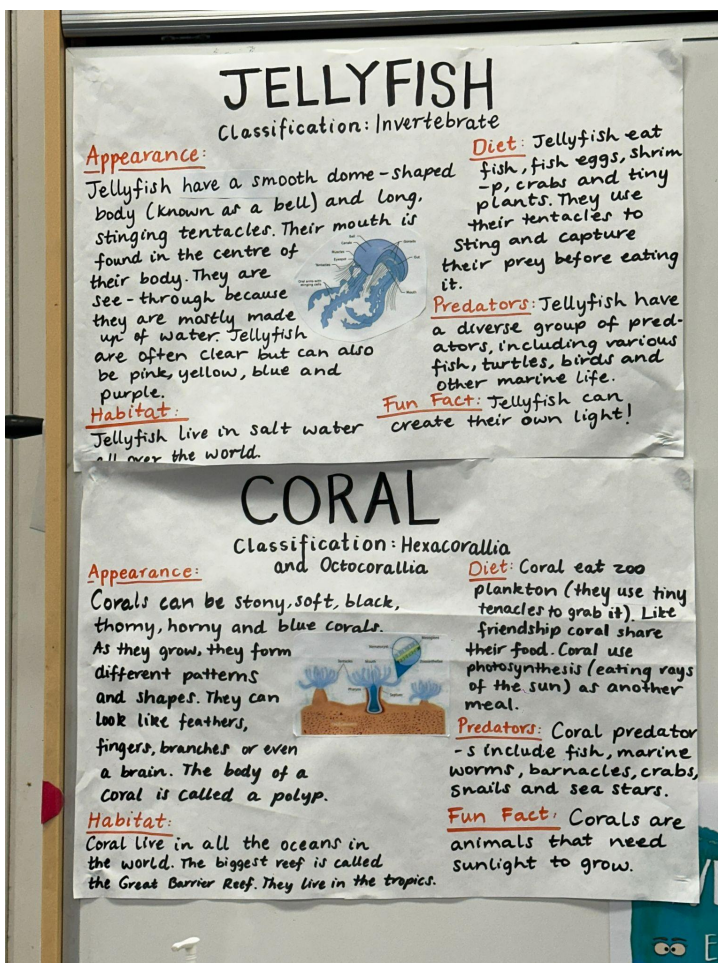 JELLYFISH
Classification: Invertebrate
Appearance:
Jellyfish have a smooth dome-shaped
body (known as a bell) and long,
stinging tentacles. Their mouth is
found in the centre of
their body. They are
see-through because
they are mostly made
up of water. Jellyfish
are often clear but can also
be pink, yellow, blue and
purple.
Habitat:
Jellyfish live in salt water
all over the world.
Diet: Jellyfish eat
fish, fish eggs, shrim
-p, crabs and tiny
plants. They use
their tentacles to
sting and capture
their prey before eating
it.
Predators: Jellyfish have
a diverse group of pred-
ators, including various
fish, turtles, birds and
other marine life.
Fun Fact: Jellyfish can
create their own light!
CORAL
Classification: Hexacorallia
and Octocorallia
Appearance:
Corals can be stony, soft, black,
thorny, horny and blue corals.
As they grow, they form
different patterns
and shapes. They can
look like feathers,
fingers, branches or even
a brain. The body of a
coral is called a polyp.
Habitat:
Coral live in all the oceans in
the world. The biggest reef is called
the Great Barrier Reef. They live in the tropics.
Diet: Coral eat zoo
plankton (they use tiny
tenacles to grab it). Like
friendship coral share
their food. Coral use
photosynthesis (eating rays
of the sun) as another
meal.
Predators: Coral predator
-s include fish, marine
worms, barnacles, crabs,
snails and sea stars.
Fun Fact: Corals are
animals that need
sunlight to grow.